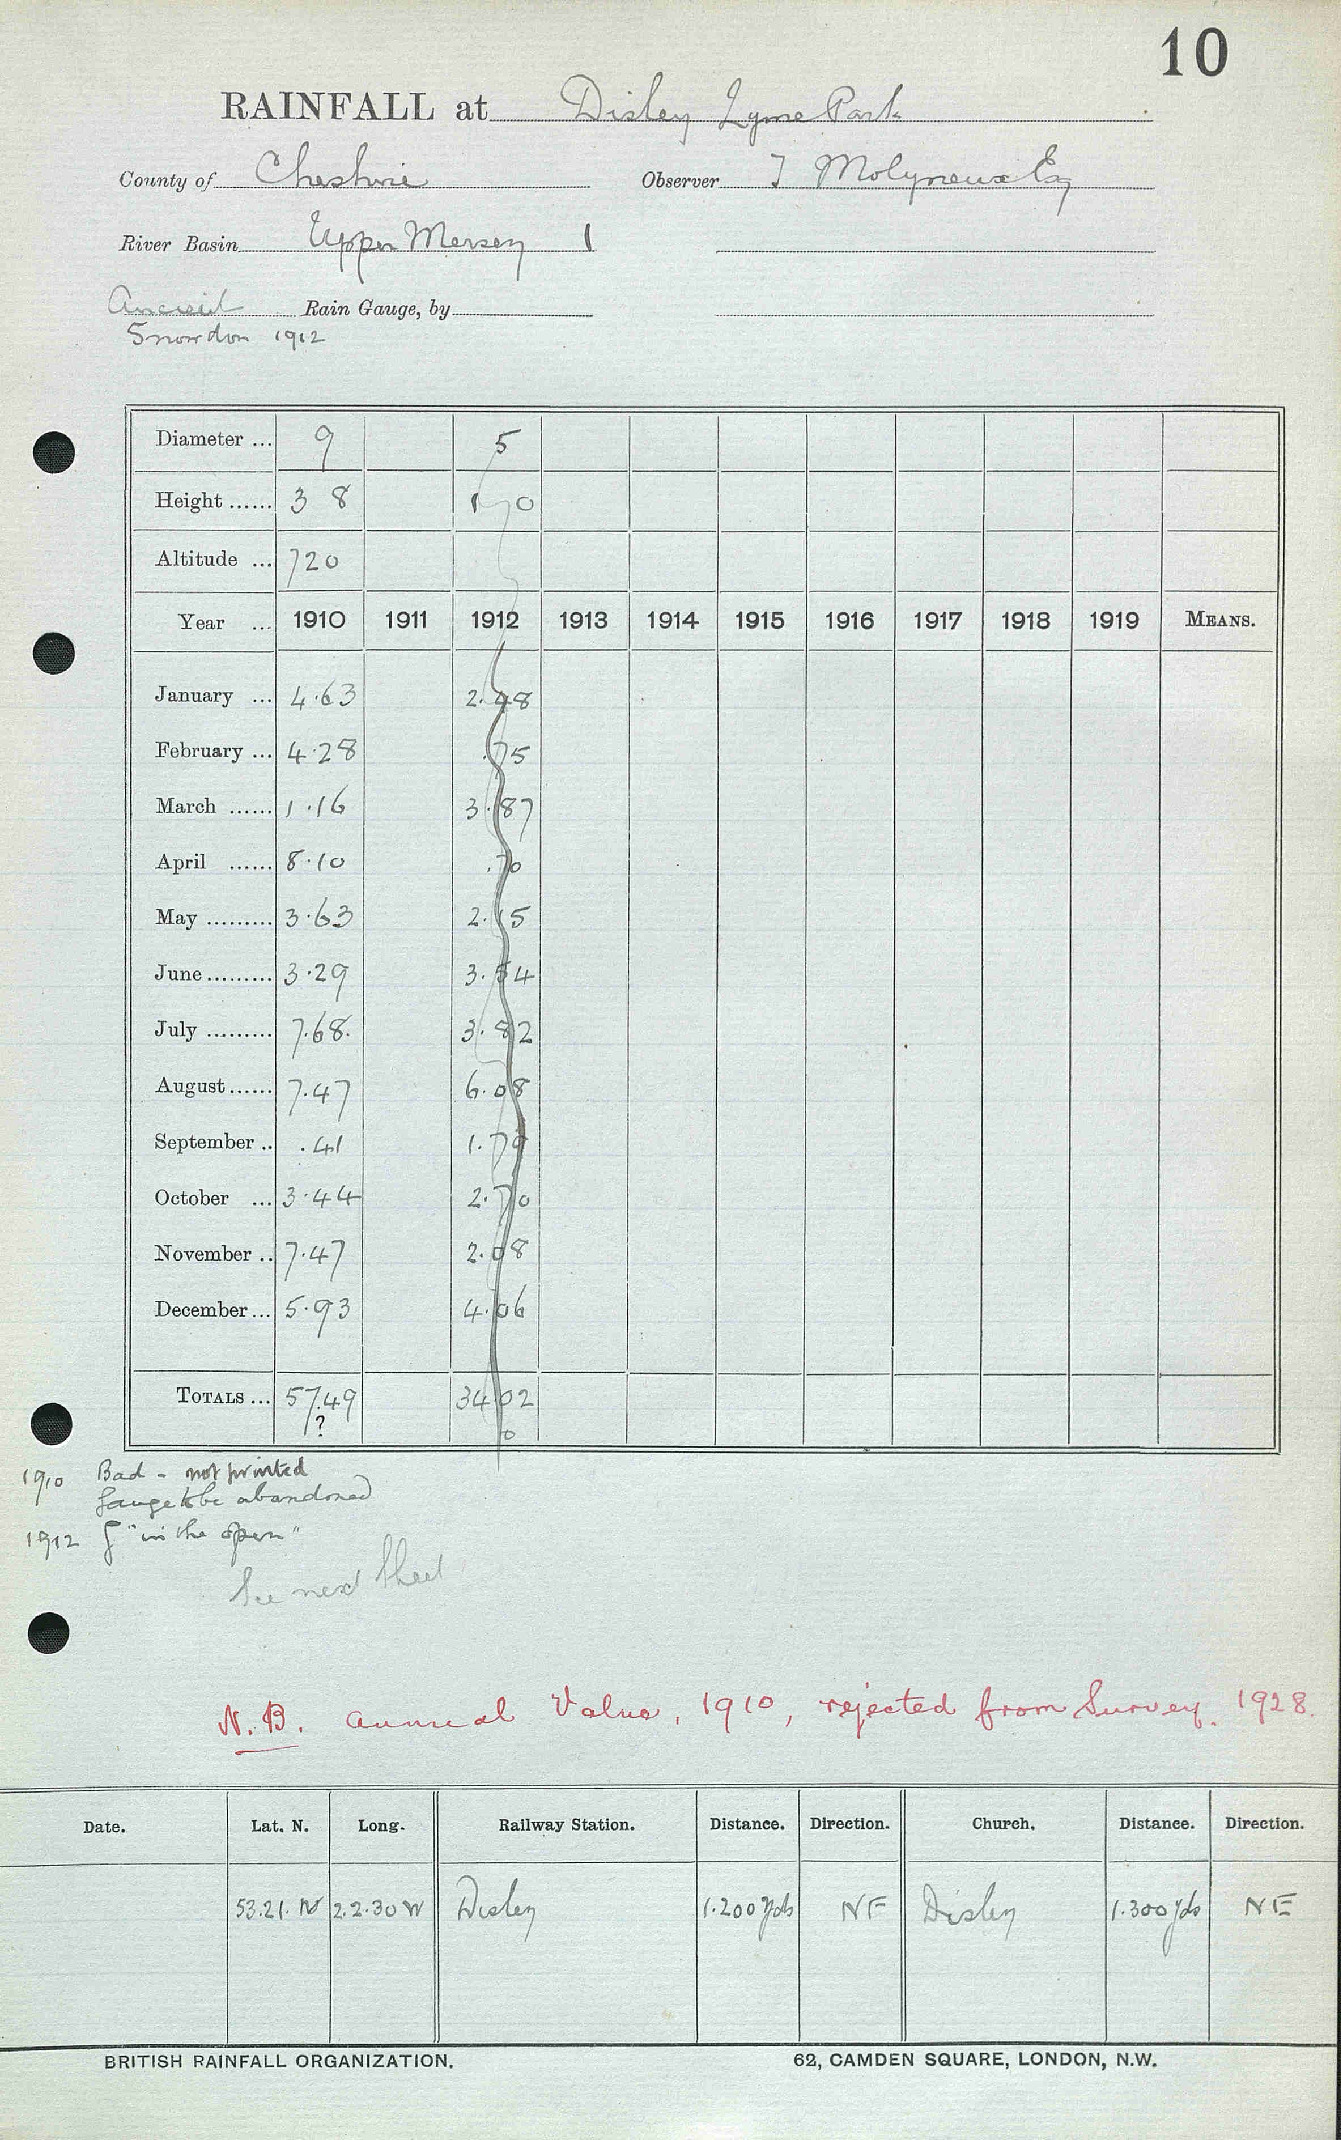 10
RAINFALL at Disley Lyme Park
County of Cheshire Observer T Molyneux Esq
River Basin Upper Mersey 1
Ancient Rain Gauge, by
Snowdon 1912
Diameter ... 9 5
Height ...... 3 8 1 0
Altitude ... 720
Year ... 1910 1911 1912 1913 1914 1915 1916 1917 1918 1919 MEANS.
January ... 4.63 2.48
February ... 4.28 .75
March ...... 1.16 3.87
April ...... 8.10 .70
May ......... 3.63 2.15
June ......... 3.29 3.54
July ......... 7.68 3.82
August ...... 7.47 6.08
September .. .41 1.79
October ... 3.44 2.70
November .. 7.47 2.08
December ... 5.93 4.06
TOTALS ... 57.49 34.02
? 0
1910 Bad - not printed
Gauge to be abandoned
1912 G "in the open"
See next sheet
N.B. Annual Value, 1910, rejected from Survey. 1928.
Date. Lat. N. Long. Railway Station. Distance. Direction. Church. Distance. Direction.
53.21. N 2.2.30 W Disley 1.200 yds NE Disley 1.300 yds NE
BRITISH RAINFALL ORGANIZATION. 62, CAMDEN SQUARE, LONDON, N.W.